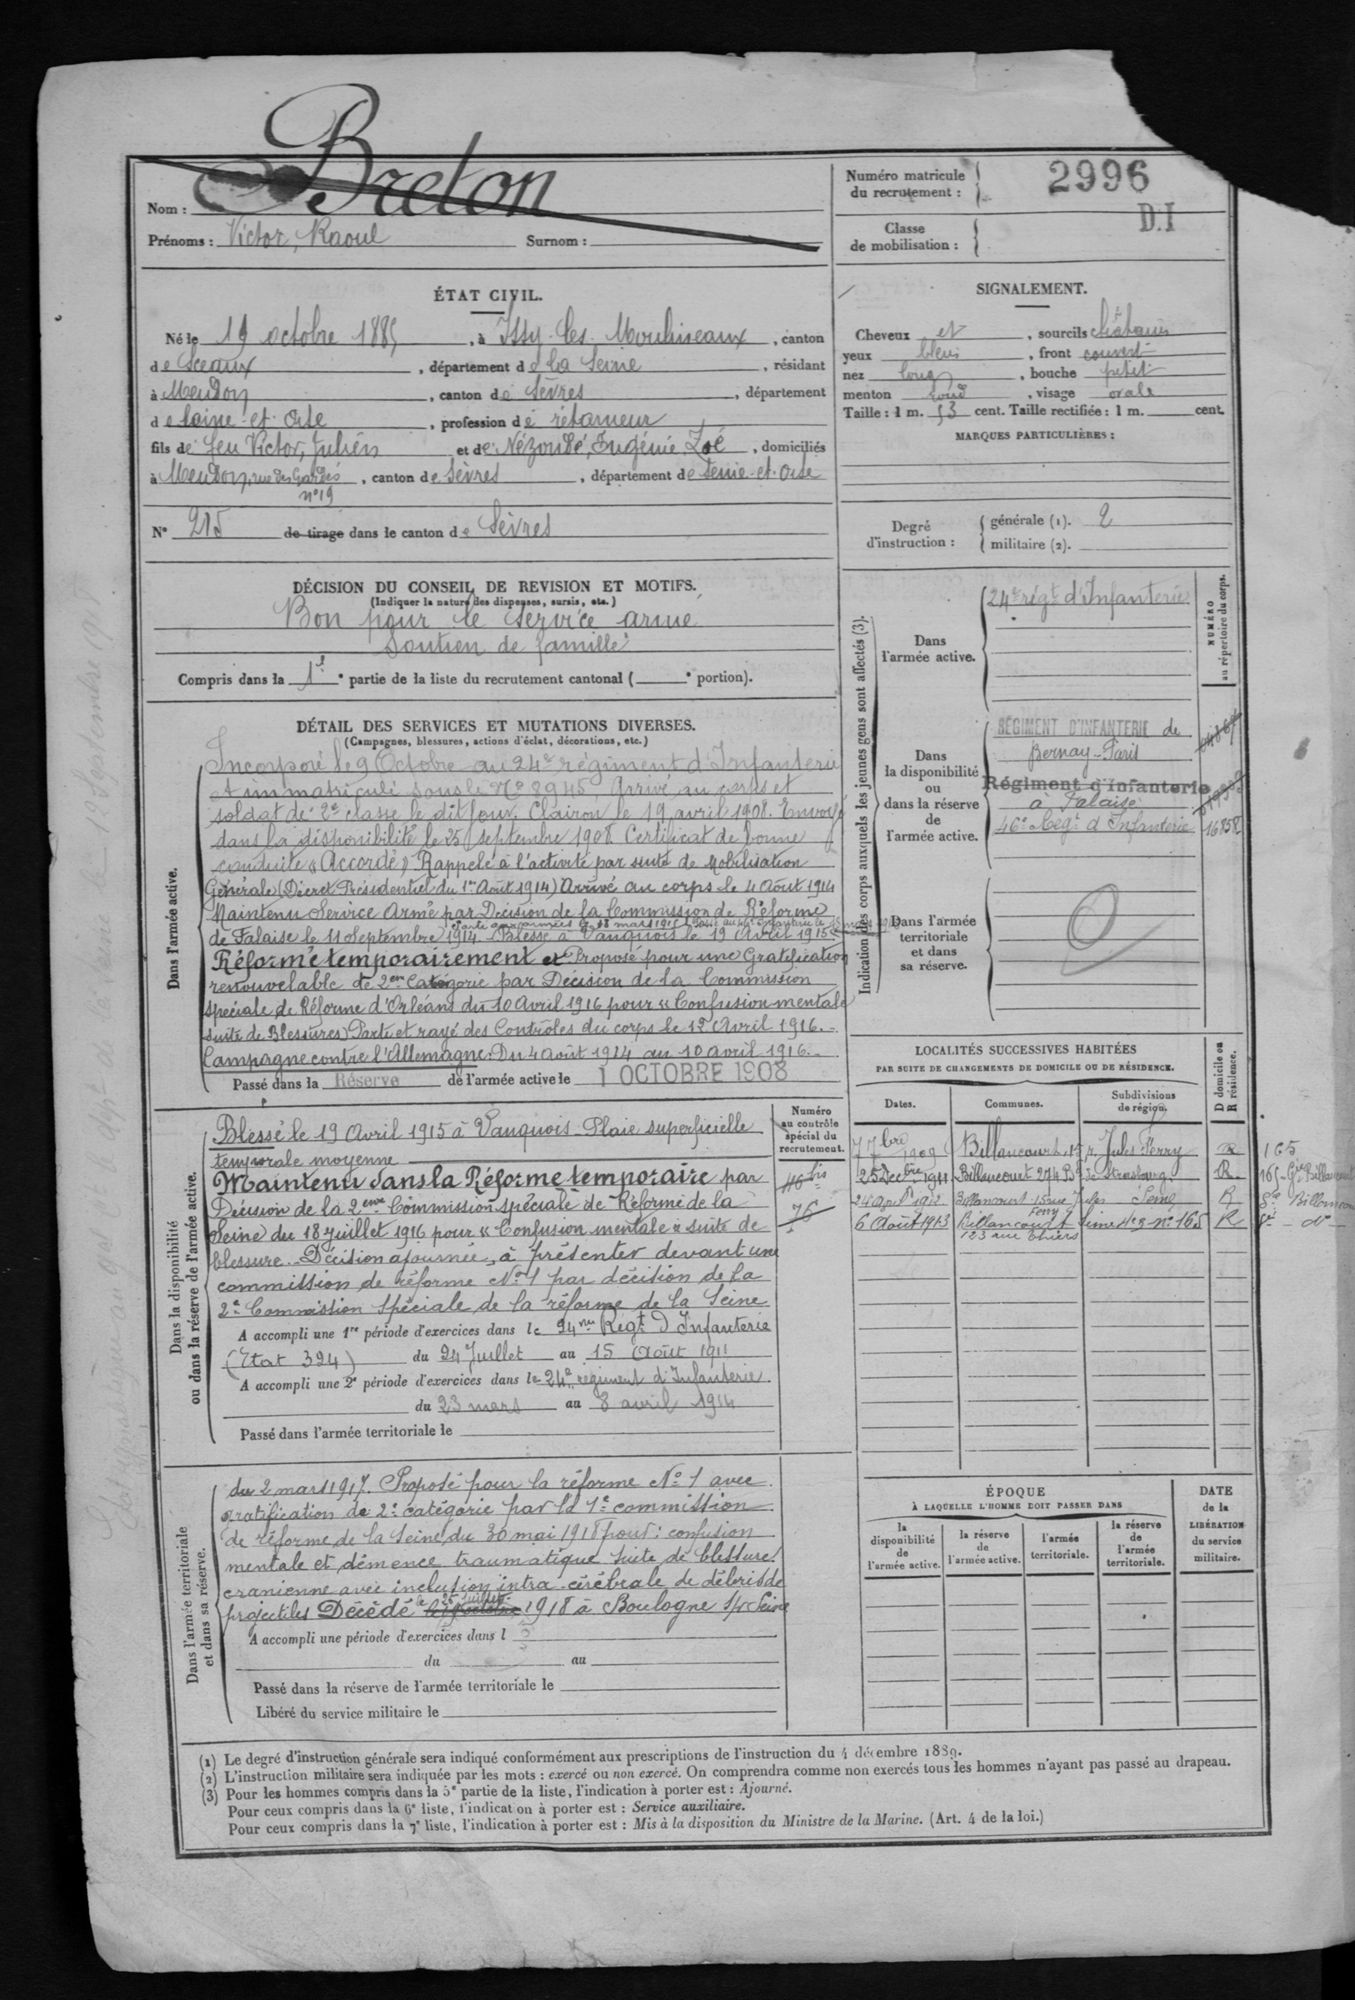 Nom : Breton
Prénoms : Victor, Raoul Surnom :
Numéro matricule du recrutement : 2996
D.I
Classe de mobilisation :
ÉTAT CIVIL.
Né le 19 octobre 1885, à Issy-les-Moulineaux, canton
de Sceaux, département de la Seine, résidant
à Meudon, canton de Sèvres, département
de Seine-et-Oise, profession de rétameur
fils de feu Victor, Julien et de Nézondé, Eugénie, Zoé, domiciliés
à Meudon, rue des Gardes n° 19, canton de Sèvres, département de Seine-et-Oise
N° 215 de tirage dans le canton de Sèvres
SIGNALEMENT.
Cheveux et, sourcils châtains
yeux bleus, front couvert
nez long, bouche petit
menton rond, visage ovale
Taille : 1 m. 53 cent. Taille rectifiée : 1 m. cent.
MARQUES PARTICULIÈRES :
Degré d'instruction : générale (1). 2
militaire (2).
DÉCISION DU CONSEIL DE REVISION ET MOTIFS.
(Indiquer la nature des dispenses, sursis, etc.)
Bon pour le service armé
Soutien de famille
Compris dans la 1e partie de la liste du recrutement cantonal ( e portion).
DÉTAIL DES SERVICES ET MUTATIONS DIVERSES.
(Campagnes, blessures, actions d'éclat, décorations, etc.)
Dans l'armée active.
Incorporé le 9 Octobre au 24e régiment d'Infanterie
et immatriculé sous le No 8945 Arrivé au corps et
soldat de 2e classe le dit jour. Clairon le 19 avril 1908. Envoyé
dans la disponibilité le 25 septembre 1908 Certificat de bonne
conduite « Accordé » Rappelé à l'activité par suite de Mobilisation
Générale (Décret Présidentiel du 1er Août 1914) Arrivé au corps le 4 Août 1914
Maintenu Service Armé par Décision de la Commission de Réforme
de Falaise le 11 Septembre 1914. Blessé à Vauquois le 19 Avril 1915.
Réformé temporairement et Proposé pour une Gratification
renouvelable de 2eme Catégorie par Décision de la Commission
spéciale de Réforme d'Orléans du 10 Avril 1916 pour « Confusion mentale
suite de Blessures » Parti et rayé des Contrôles du corps le 12 Avril 1916.
Campagne contre l'Allemagne : Du 4 août 1914 au 10 avril 1916.
Passé dans la Réserve de l'armée active le 1 OCTOBRE 1908
Indication des corps auxquels les jeunes gens sont affectés (3).
NUMÉRO au répertoire du corps.
Dans l'armée active.
24e régt d'Infanterie
Dans la disponibilité ou dans la réserve de l'armée active.
RÉGIMENT D'INFANTERIE de
Bernay-Paris
Régiment d'Infanterie
à Falaise
46e Regt d'Infanterie 16858
Dans l'armée territoriale et dans sa réserve.
Dans la disponibilité ou dans la réserve de l'armée active.
Numéro au contrôle spécial du recrutement.
Blessé le 19 Avril 1915 à Vauquois - Plaie superficielle
temporale moyenne
Maintenu dans la Réforme temporaire par
Décision de la 2eme Commission spéciale de Réforme de la
Seine du 18 juillet 1916 pour « Confusion mentale » suite de
blessure. Décision ajournée, à présenter devant une
commission de réforme No 1 par décision de la
2e Commission Spéciale de la réforme de la Seine
46 bis
76
A accompli une 1re période d'exercices dans le 24me Régt d'Infanterie
(Etat 394) du 24 Juillet au 15 Août 1911
A accompli une 2e période d'exercices dans le 24e régiment d'Infanterie
du 23 mars au 8 avril 1914
Passé dans l'armée territoriale le
LOCALITÉS SUCCESSIVES HABITÉES
PAR SUITE DE CHANGEMENTS DE DOMICILE OU DE RÉSIDENCE.
Dates. Communes. Subdivisions de région. D domicile ou R résidence.
7 7bre 1909 Billancourt 15 r. Jules Ferry R 165
25 Décbre 1911 Billancourt 274 Bd de Strasbourg R.
24 April 1912 Billancourt 15 rue Jules Ferry Seine R
6 Août 1913 Billancourt 123 rue Thiers Seine No 165 R
Dans l'armée territoriale et dans sa réserve.
du 2 mars 1917. Proposé pour la réforme No 1 avec
gratification de 2e catégorie par la 1e commission
de réforme de la Seine du 30 mai 1918 pour : confusion
mentale et démence traumatique suite de blessure
cranienne avec inclusion intra-cérébrale de débris de
projectiles Décédé le 25 Juillet 1918 à Boulogne s/r Seine
A accompli une période d'exercices dans l
du au
Passé dans la réserve de l'armée territoriale le
Libéré du service militaire le
ÉPOQUE
À LAQUELLE L'HOMME DOIT PASSER DANS
la disponibilité de l'armée active. la réserve de l'armée active. l'armée territoriale. la réserve de l'armée territoriale.
DATE de la LIBÉRATION du service militaire.
(1) Le degré d'instruction générale sera indiqué conformément aux prescriptions de l'instruction du 4 décembre 1889.
(2) L'instruction militaire sera indiquée par les mots : exercé ou non exercé. On comprendra comme non exercés tous les hommes n'ayant pas passé au drapeau.
(3) Pour les hommes compris dans la 5e partie de la liste, l'indication à porter est : Ajourné.
Pour ceux compris dans la 6e liste, l'indication à porter est : Service auxiliaire.
Pour ceux compris dans la 7e liste, l'indication à porter est : Mis à la disposition du Ministre de la Marine. (Art. 4 de la loi.)